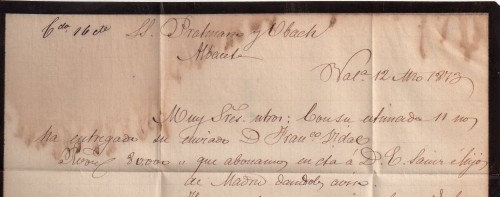 Cdo 16 cte SS. Pratmans y Obach
Albacete
Vala. 12 Mzo 1873
Muy Sres. ntros: Con su estimada 11 nos
ha entregado su enviado D. Franco. Vidal
Rvon. 80,000 " que abonamos en cta á D. E. Sainz é hijos
de Madrid dandoles aviso.